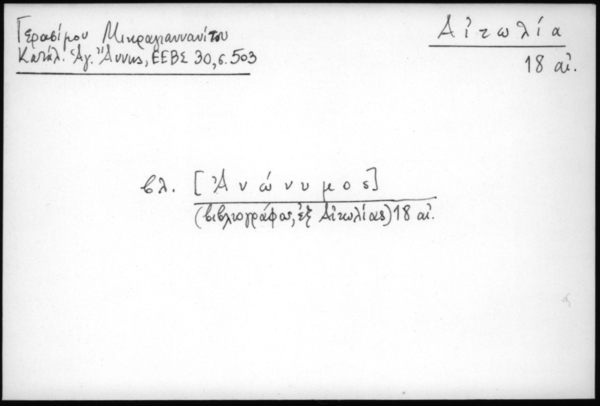 Γερασίμου Μικραγιαννανίτου
Κατάλ. Ἁγ. Ἄννης, ΕΕΒΣ 30, σ. 503
Αἰτωλία
18 αἰ.
βλ. [Ἀνώνυμος]
(βιβλιογράφος, ἐξ Αἰτωλίας) 18 αἰ.